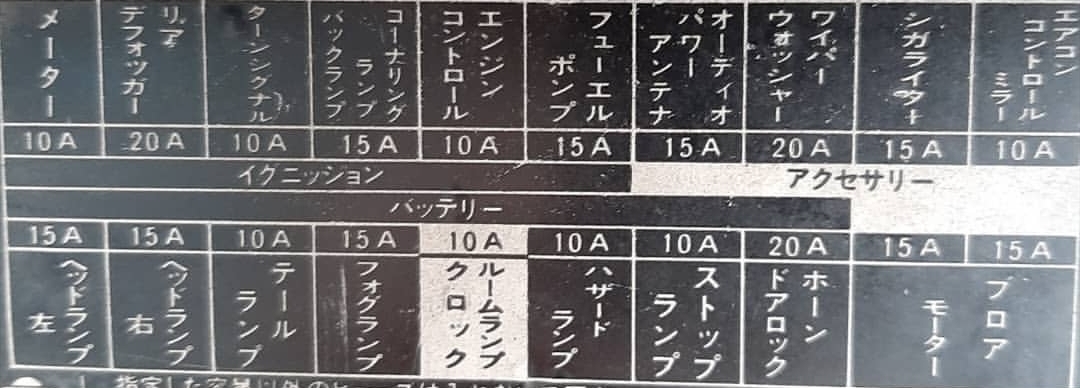 メーター
リア
デフォッガー
ターンシグナル
コーナリング
ランプ
バックランプ
エンジン
コントロール
フューエル
ポンプ
オーディオ
パワー
アンテナ
ワイパー
ウォッシャー
シガライター
エアコン
コントロール
ミラー
10A 20A 10A 15A 10A 15A 15A 20A 15A 10A
イグニッション アクセサリー
バッテリー
15A 15A 10A 15A 10A 10A 10A 20A 15A 15A
ヘッドランプ
左
ヘッドランプ
右
テール
ランプ
フォグランプ
ルームランプ
クロック
ハザード
ランプ
ストップ
ランプ
ホーン
ドアロック
ブロア
モーター
指定した容量以外のヒューズは